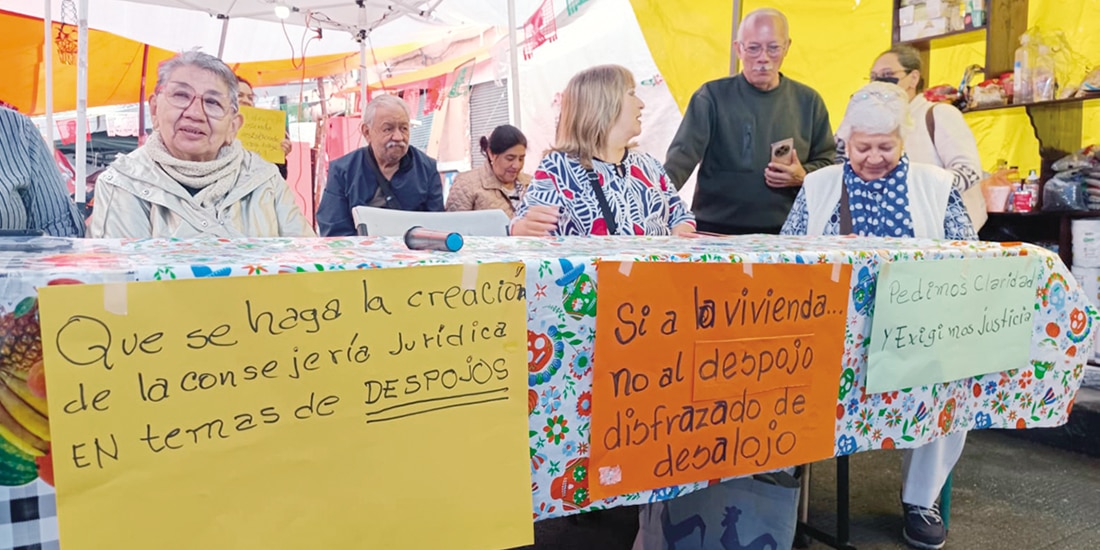 Que se haga la creación
de la consejería Jurídica
EN temas de DESPOJOS
Si a la vivienda...
no al despojo
disfrazado de
desalojo
Pedimos Claridad
Y Exigimos Justicia